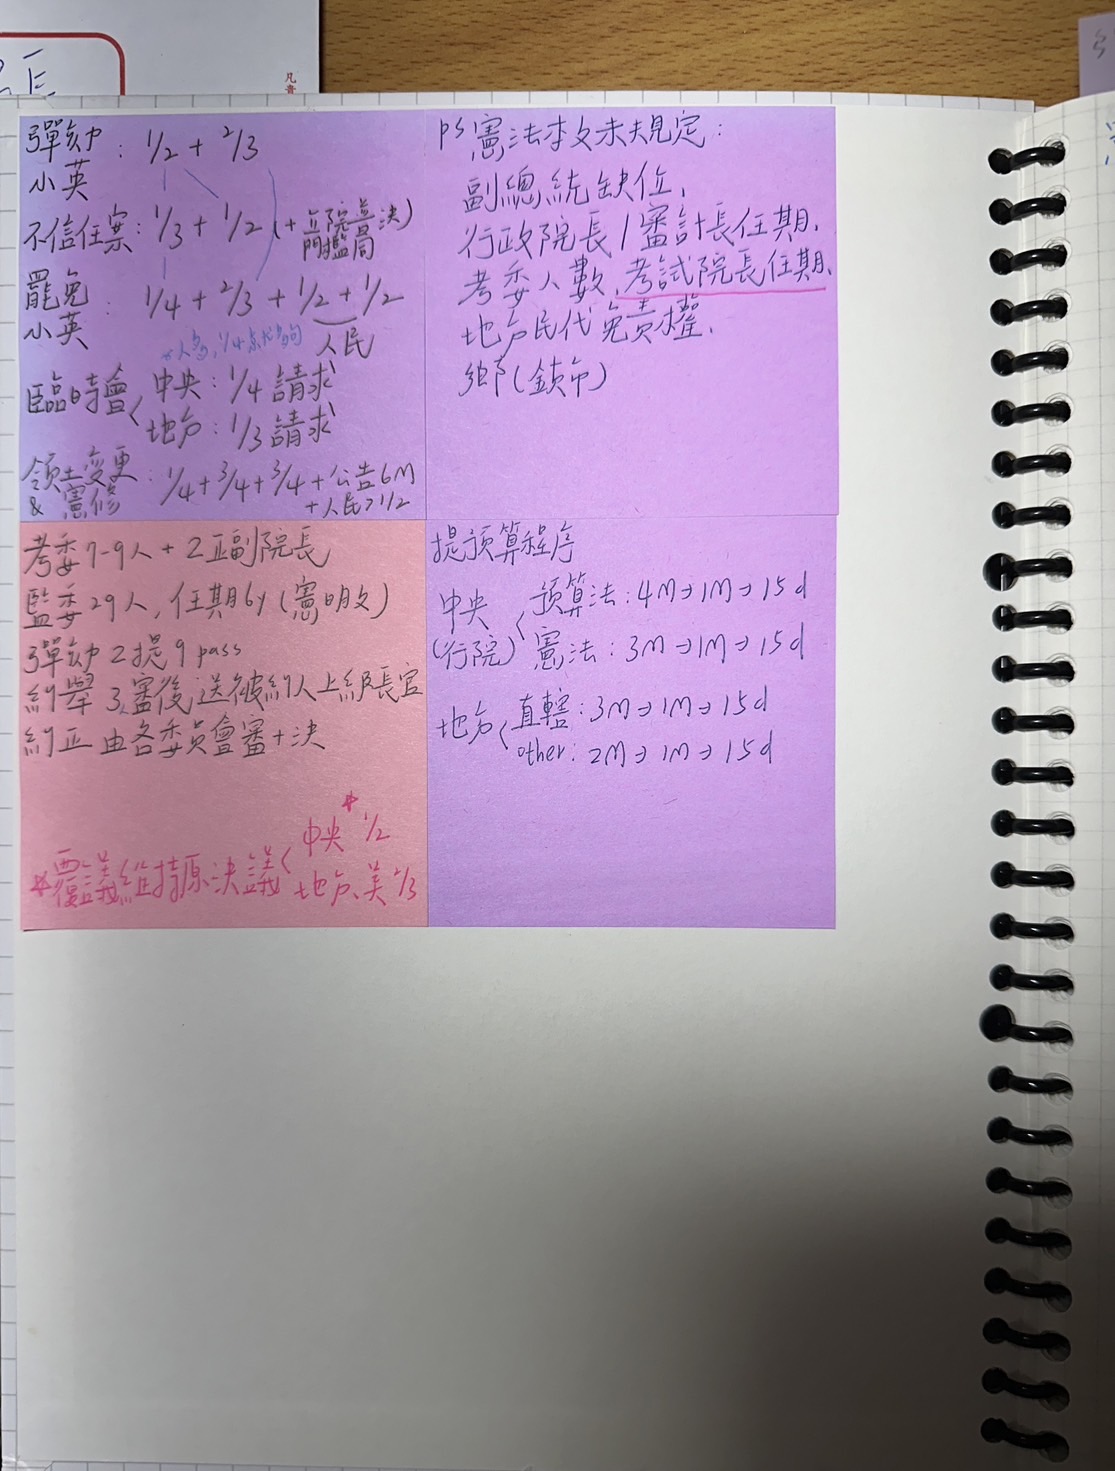 彈劾小英：1/2 + 2/3
不信任案：1/3 + 1/2 (+ 立院並決)
罷免小英：1/4 + 2/3 + 1/2 + 1/2
人民
臨時會
中央：1/4 請求
地方：1/3 請求
領土變更 & 憲修：1/4 + 3/4 + 3/4 + 公告6M
+人民>1/2
ps 憲法本文未規定：
副總統缺位、
行政院長/審計長任期、
考委人數、考試院長任期、
地方民代免責權、
鄉(鎮市)
考委7-9人 + 2正副院長
監委29人，任期6y (憲明文)
彈劾 2提9 pass
糾舉 3審後送被糾人上級長官
糾正 由各委員會審+決
*覆議維持原決議
中央* 1/2
地方、美 2/3
提預算程序
中央(行院)
預算法：4M→1M→15d
憲法：3M→1M→15d
地方
直轄：3M→1M→15d
other：2M→1M→15d